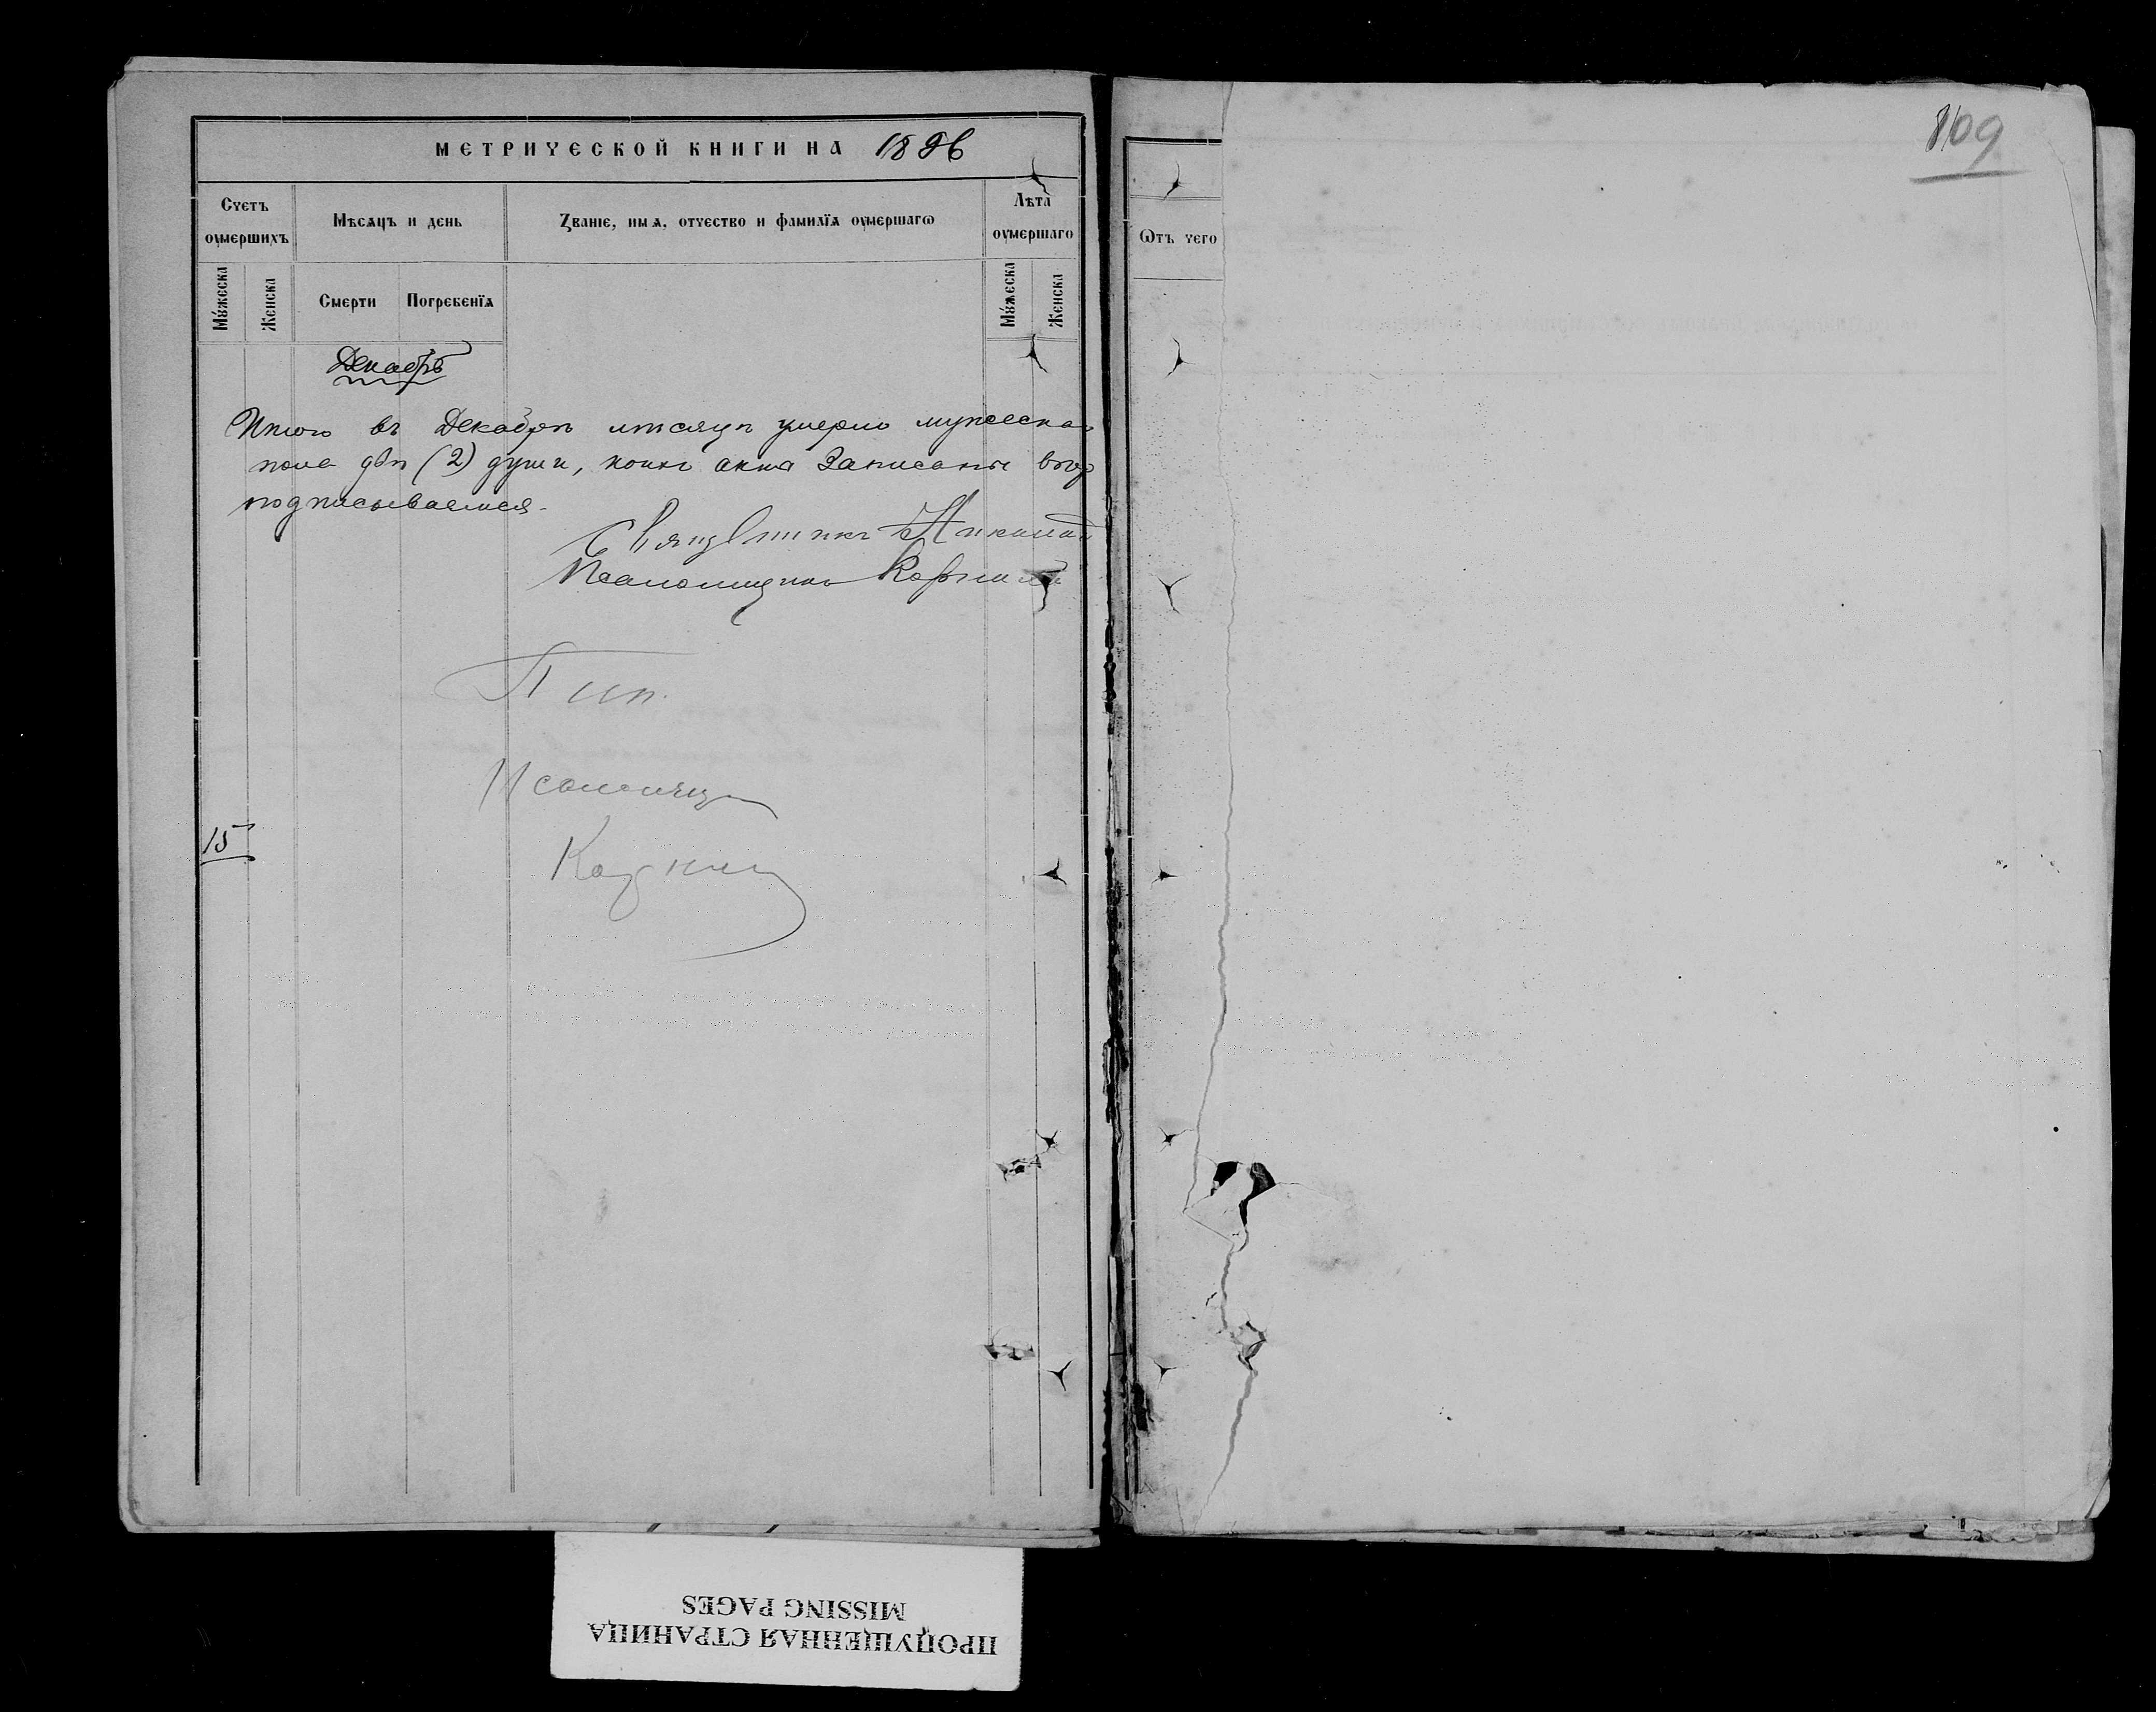 МЕТРИЧЕСКОЙ КНИГИ НА 1896
Счетъ оумершихъ
Мѣсяцъ и день
Званіе, имя, отчество и фамилія оумершагѡ
Лѣта оумершаго
Мужеска
Женска
Смерти
Погребенїя
Мужеска
Женска
Декабрь
Итого въ Декабрѣ мѣсяцѣ умерло мужеска
пола двѣ (2) души, коихъ акты записаны
подписываемся.
Священникъ
Псаломщикъ
Псаломщ
15
Ѿтъ чего
109
ПРОПУЩЕННАЯ СТРАНИЦА
MISSING PAGES